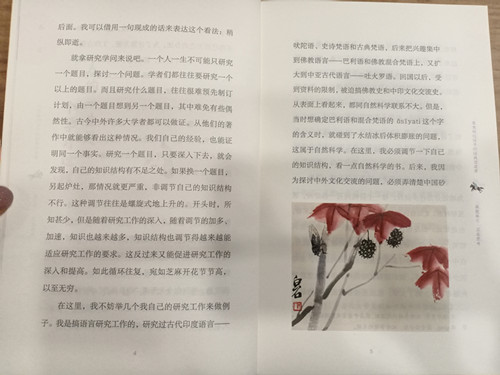 后面。我可以借用一句现成的话来表达这个看法：稍
纵即逝。
就拿研究学问来说吧。一个人一生不可能只研究
一个题目，探讨一个问题。学者们都往往要研究一个
以上的题目。而且研究什么题目，往往很难预先制订
计划，由一个题想到另一个题目，其中难免有些偶
然性。古今中外许多大学者都可以做证。从他们的著
作中就能够看出这种情况。我们自己的经验，也能证
明同一个事实。研究一个题目，只要深入下去，就会
发现，自己的知识结构有不足之处。如果换一个题目，
另起炉灶，那情况就更严重，非调节自己的知识结构
不行。这种调节往往是螺旋式地上升的。开头时，所
知甚少，但是随着研究工作的深入，随着调节的加多、
加速，知识也越来越多，知识结构也调节得越来越能
适应研究工作的要求。这反过来又能促进研究工作的
深入和提高。如此循环往复，宛如芝麻开花节节高，
以至无穷。
在这里，我不妨举几个我自己的研究工作来做例
子。我是搞语言研究工作的，研究过古代印度语言——
吠陀语、史诗梵语和古典梵语，后来把兴趣集中
到佛教语言——巴利语和佛教混合梵语上，又扩
大到中亚古代语言——吐火罗语。回国以后，受
到资料的限制，被迫搞佛教史和中印文化交流史。
从表面上看起来，都同自然科学联系不大。但是，
当时想确定巴利语和混合梵语的 Śniyati 这个字
的含义时，就碰到了水结冰后体积膨胀的问题，
这属于自然科学。在这里，我必须调节一下自己
的知识结构，看一点自然科学的书。后来，我因
为探讨中外文化交流的问题，必须弄清楚中国砂